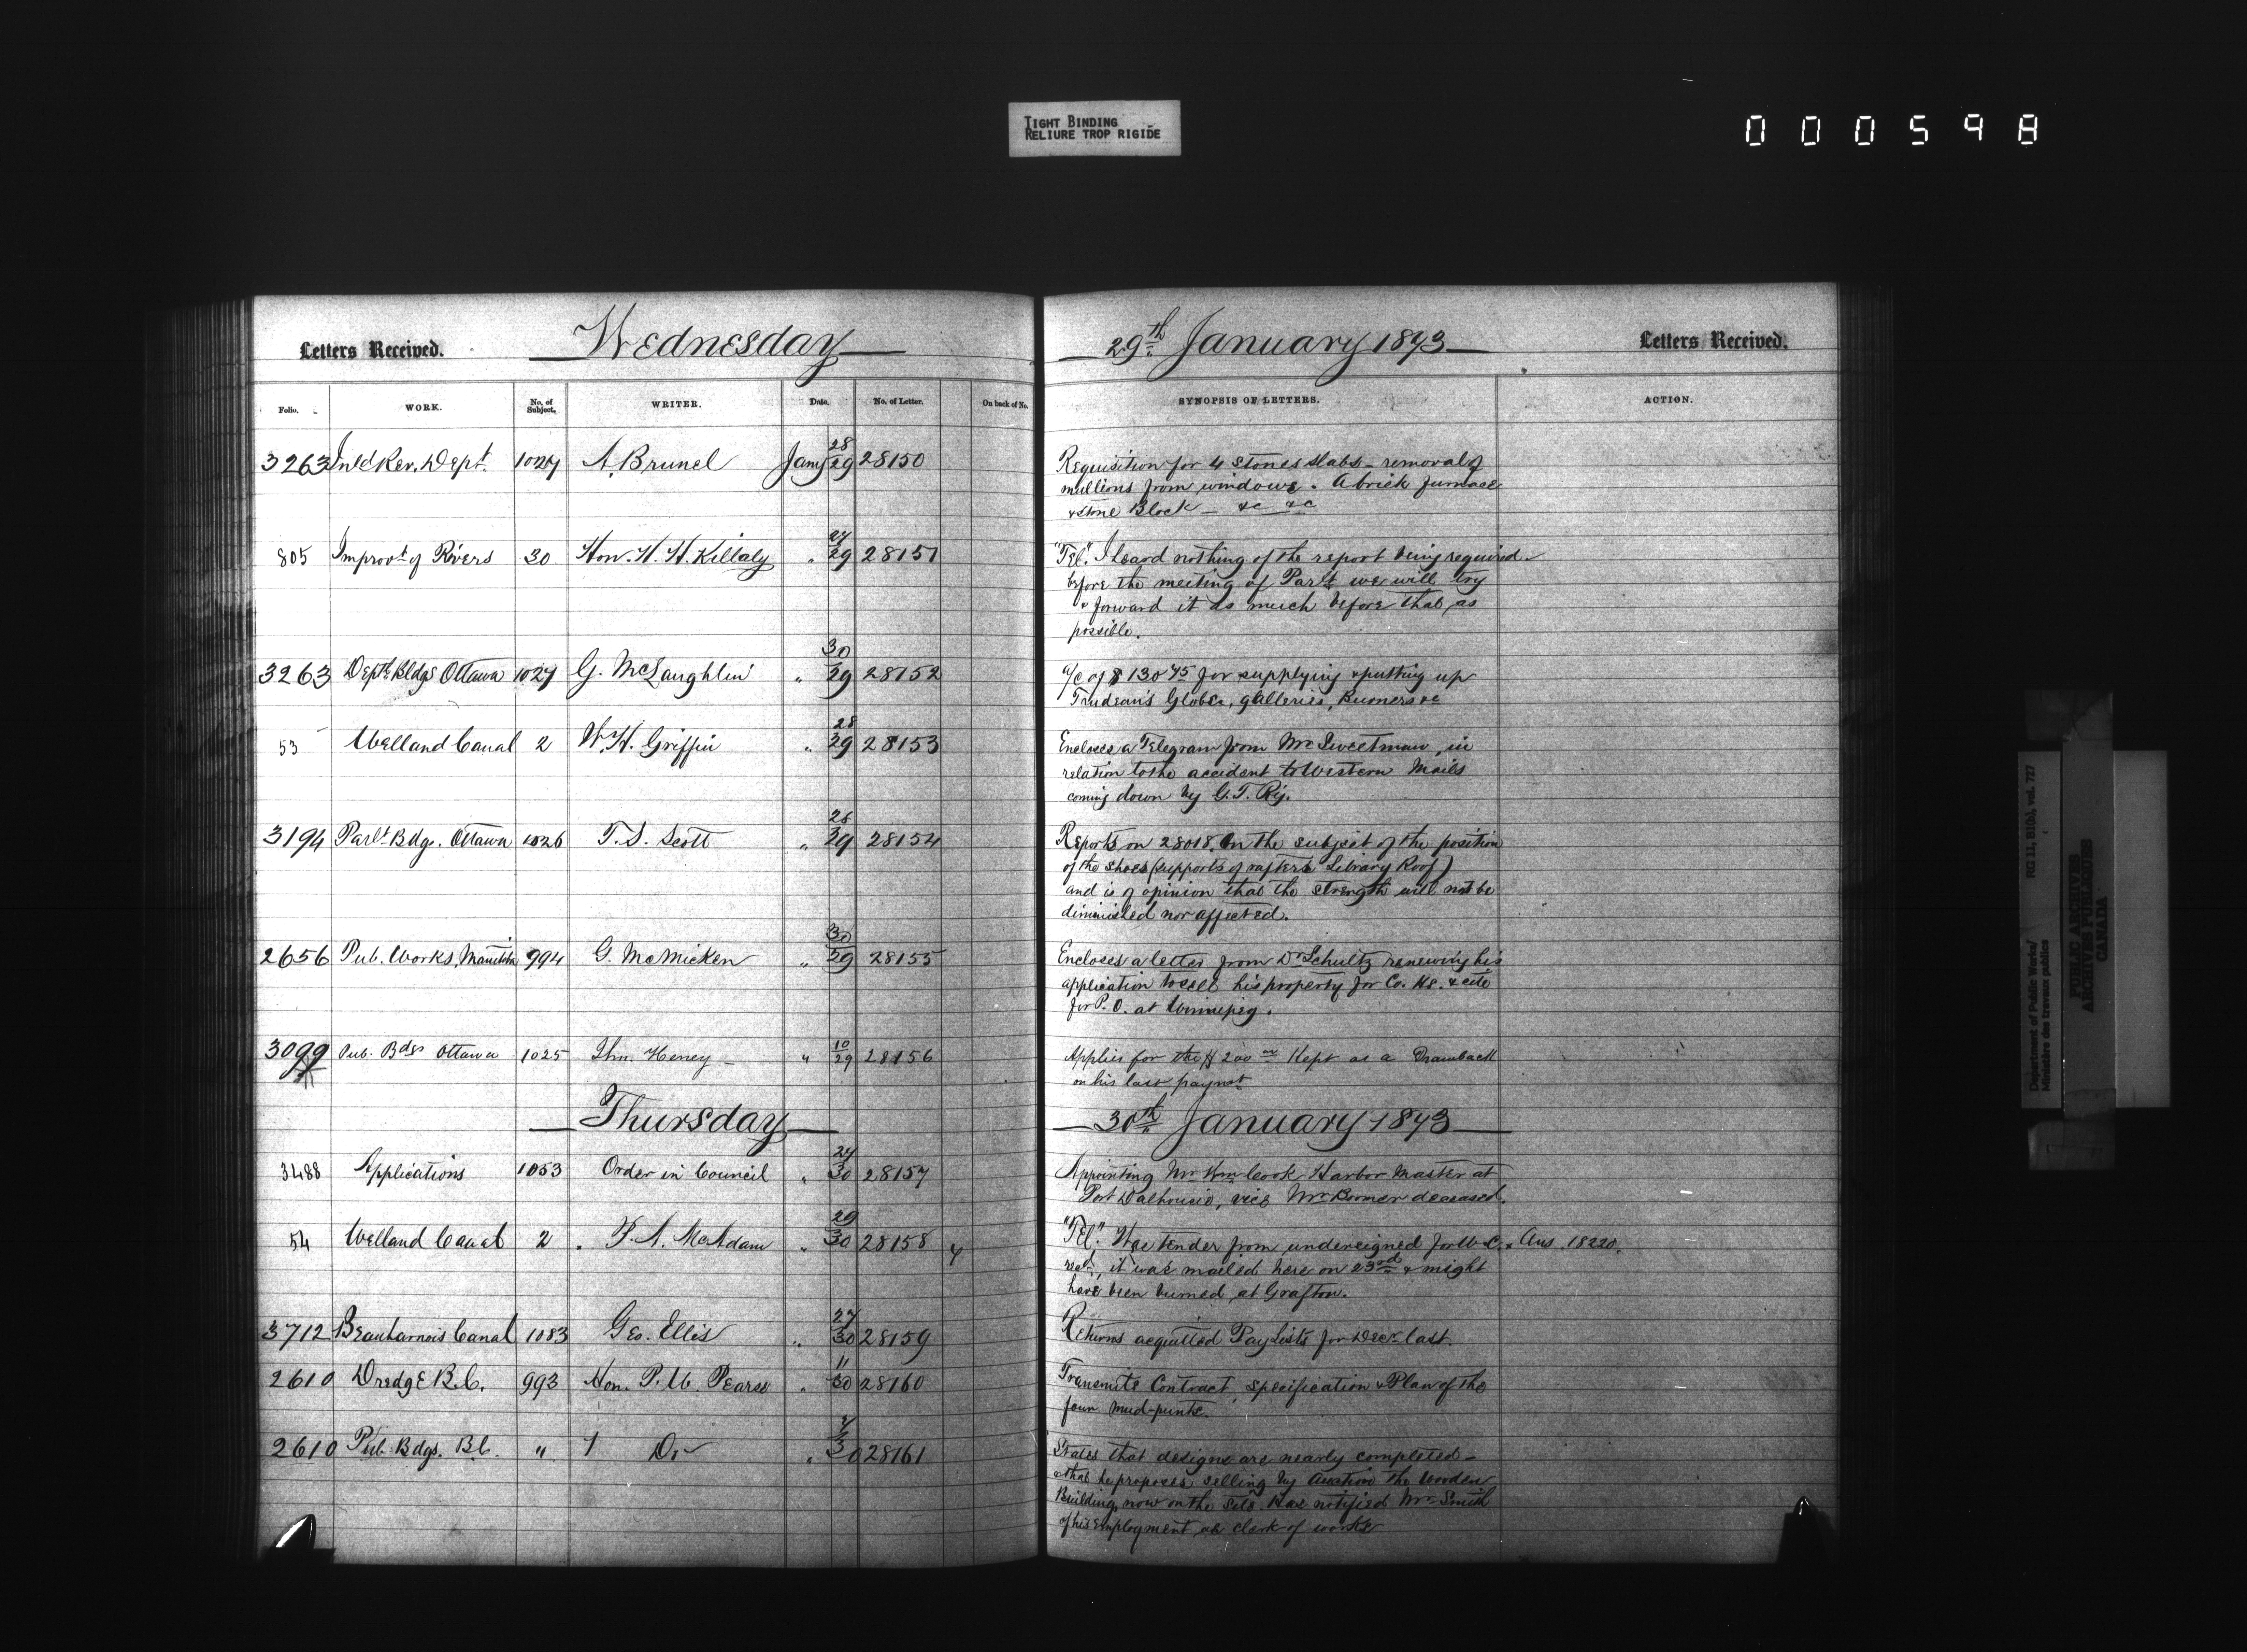 TIGHT BINDING
RELIURE TROP RIGIDE
000598
Letters Received. Wednesday 29th January 1873 Letters Received.
Folio. WORK. No. of Subject. WRITER. Date. No. of Letter. On back of No. SYNOPSIS OF LETTERS. ACTION.
3263 Inld Rev. Dept. 1027 A. Brunel Jany 28/29 28150 Requisition for 4 stones slabs - removal of
mullions from windows. A brick furnace
& stone Block - &c &c
805 Improvt of Rivers 30 Hon. H. H. Killaly " 27/29 28151 "Tel." I heard nothing of the report being required
before the meeting of Parlt we will try
& forward it as much before that as
possible.
3263 Deptl Bldgs Ottawa 1027 G. McLaughlin " 30/29 28152 a/c of $130 75 for supplying & putting up
Trudeau's Globes, galleries, Burners &c
53 Welland Canal 2 W. H. Griffin " 28/29 28153 Encloses a Telegram from Mr Sweetman, in
relation to the accident to Western Mails
coming down by G. T. Ry.
3194 Parlt Bdgs. Ottawa 1026 T. S. Scott " 28/29 28154 Reports on 28018. On the subject of the position
of the shoes (supports of rafters Library Roof)
and is of opinion that the strength will not be
diminished nor affected.
2656 Pub. Works, Manitoba 994 G. McMicken " 30/29 28155 Encloses a letter from Dr Schultz renewing his
application to sell his property for Co. Hs. & site
for P. O. at Winnipeg.
3099 Pub. Bdgs Ottawa 1025 Jhn. Heney " 10/29 28156 Applies for the $200 00 Kept as a Drawback
on his last paymt
Thursday 30th January 1873
3488 Applications 1053 Order in Council " 27/30 28157 Appointing Mr Wm Cook Harbor Master at
Port Dalhousie, vice Mr Boomer deceased.
54 Welland Canal 2 F. A. McAdam " 29/30 28158 y "Tel." Was tender from undersigned for W. C. Ans. 18220.
recd, it was mailed here on 23rd & might
have been burned at Grafton.
3712 Beauharnois Canal 1083 Geo. Ellis " 27/30 28159 Returns acquitted Pay Lists for Decr last.
2610 Dredge B.C. 993 Hon. P. W. Pearse " 11/30 28160 Transmits Contract, specification & Plan of the
four mud-punts.
2610 Pub. Bdgs. B.C. " Do 30 28161 States that designs are nearly completed -
& that he proposes selling by Auction the wooden
Buildings now on the site. Has notified Mr Smith
of his Employment as clerk of works
RG 11, B1(b), vol. 727
Department of Public Works/
Ministère des travaux publics
PUBLIC ARCHIVES
ARCHIVES PUBLIQUES
CANADA